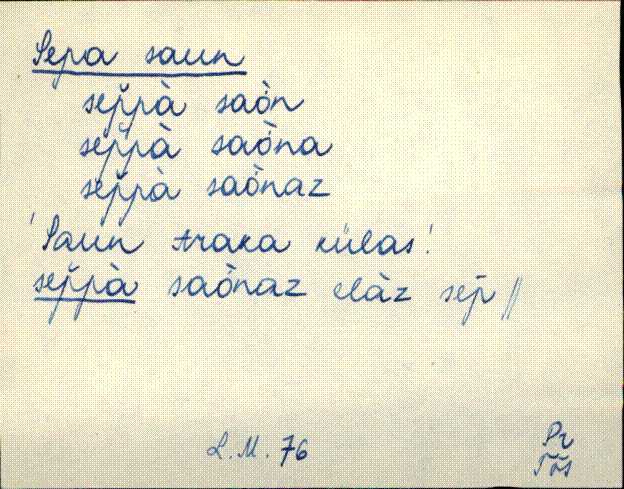 Sepa saun
sep̆pà saòn
sep̆pà saòna
sep̆pà saònaz
'Saun Araka külas!
sep̆pà saònaz elàz sep̄ //
L. M. 76
Pr
Tõs